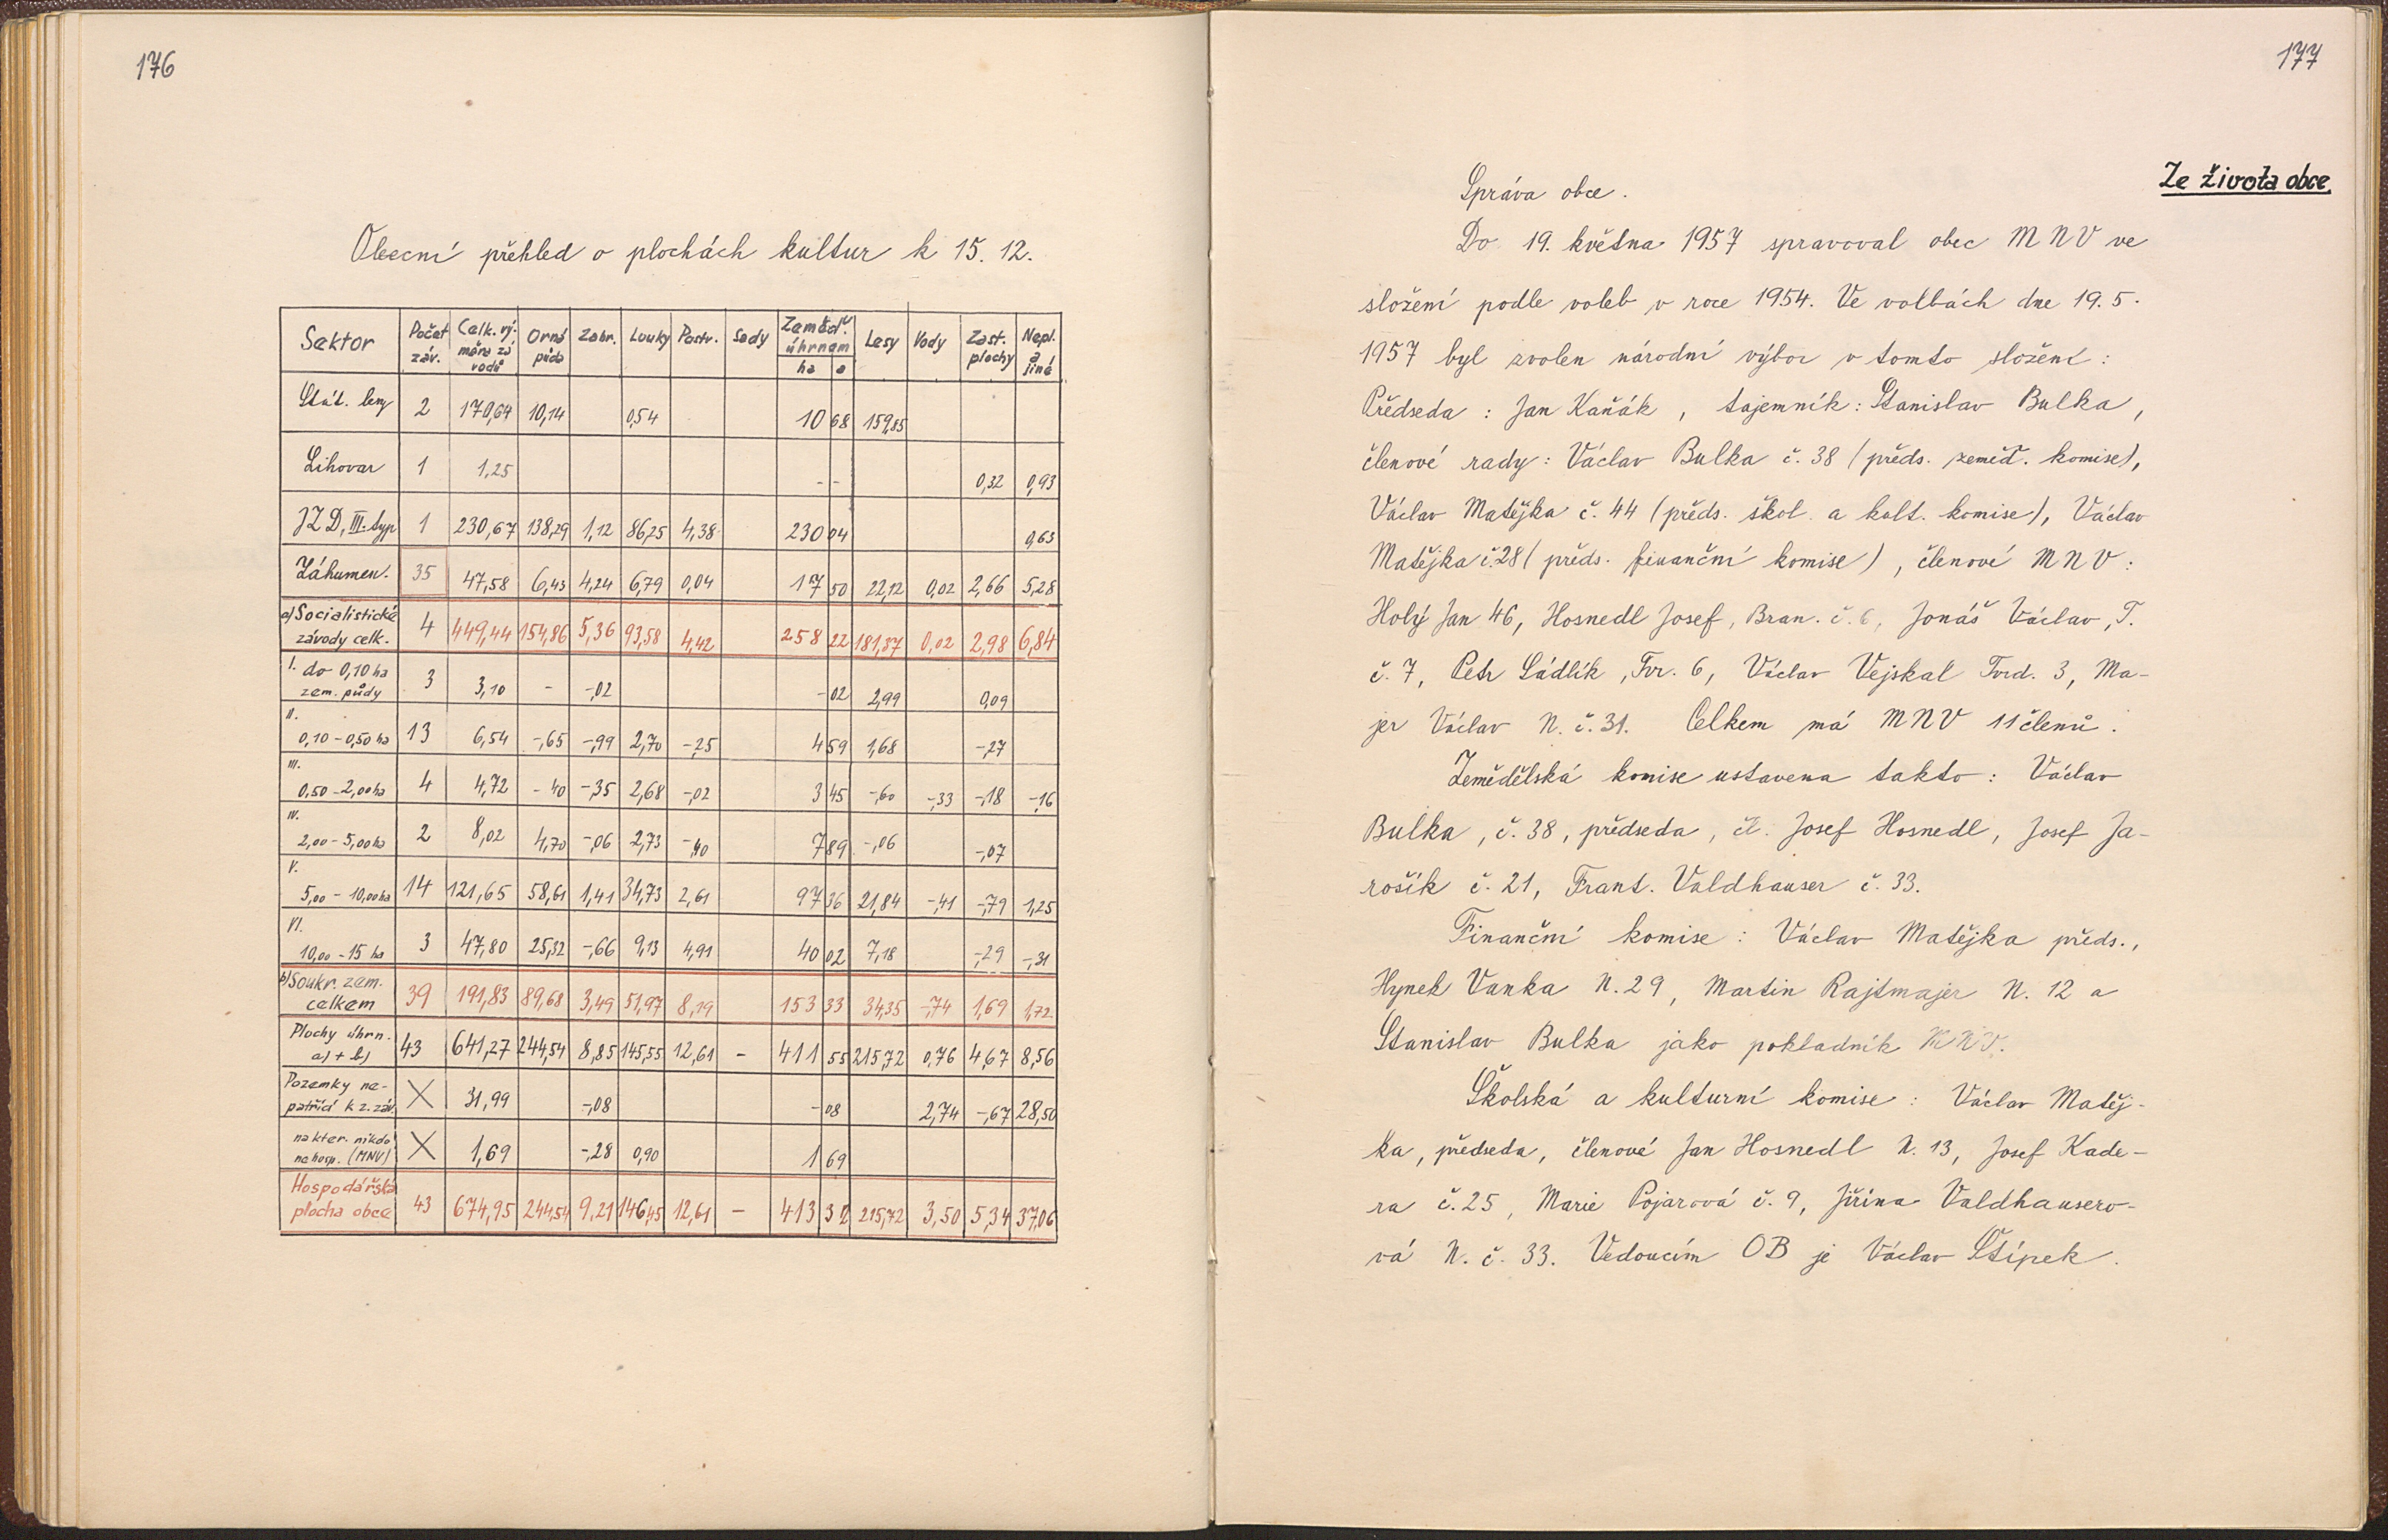 176
Obecní přehled o plochách kultur k 15. 12.
Sektor Počet záv. Celk. výměra závodů Orná půda Zahr. Louky Pastv. Sady Zeměd. úhrnem ha a Lesy Vody Zast. plochy Nepl. a jiné
Stát. lesy 2 170,64 10,14 0,54 10 68 159,85
Lihovar 1 1,25 - - 0,32 0,93
JZD, III. typ 1 230,67 138,29 1,12 86,25 4,38 230 04 0,63
Záhumen. 35 47,58 6,43 4,24 6,79 0,04 17 50 22,12 0,02 2,66 5,28
a) Socialistické závody celk. 4 449,44 154,86 5,36 93,58 4,42 258 22 181,37 0,02 2,98 6,84
I. do 0,10 ha zem. půdy 3 3,10 - -,02 - 02 2,99 0,09
II. 0,10 - 0,50 ha 13 6,54 -,65 -,99 2,70 -,25 4 59 1,68 -,27
III. 0,50 - 2,00 ha 4 4,72 - 40 -,35 2,68 -,02 3 45 -,60 -,33 -,18 -,16
IV. 2,00 - 5,00 ha 2 8,02 4,70 -,06 2,73 -,40 7 89 -,06 -,07
V. 5,00 - 10,00 ha 14 121,65 58,61 1,41 34,73 2,61 97 36 21,84 -,41 -,79 1,25
VI. 10,00 - 15 ha 3 47,80 25,32 -,66 9,13 4,91 40 02 7,18 -,29 -,31
b) Soukr. zem. celkem 39 191,83 89,68 3,49 51,97 8,19 153 33 34,35 -,74 1,69 1,72
Plochy úhrn. a) + b) 43 641,27 244,54 8,85 145,55 12,61 - 411 55 215,72 0,76 4,67 8,56
Pozemky nepatřící k z. záv. X 31,99 -,08 - 08 2,74 -,67 28,50
na kter. nikdo nehosp. (MNV) X 1,69 -,28 0,90 1 69
Hospodářská plocha obce 43 674,95 244,54 9,21 146,45 12,61 - 413 32 215,72 3,50 5,34 37,06
177
Ze života obce
Správa obce.
Do 19. května 1957 spravoval obec MNV ve
složení podle voleb v roce 1954. Ve volbách dne 19. 5.
1957 byl zvolen národní výbor v tomto složení:
Předseda: Jan Kaňák, tajemník: Stanislav Bulka,
členové rady: Václav Bulka č. 38 (předs. zeměď. komise),
Václav Matějka č. 44 (předs. škol. a kult. komise), Václav
Matějka č. 28 (předs. finanční komise), členové MNV:
Holý Jan 46, Hosnedl Josef, Bran. č. 6, Jonáš Václav, T.
č. 7, Petr Sádlík, Tvr. 6, Václav Vejskal Tvrd. 3, Ma-
jer Václav N. č. 31. Celkem má MNV 11 členů.
Zemědělská komise ustavena takto: Václav
Bulka, č. 38, předseda, čl. Josef Hosnedl, Josef Ja-
rošík č. 21, Frant. Valdhauser č. 33.
Finanční komise: Václav Matějka předs.,
Hynek Vanka N. 29, Martin Rajtmajer N. 12 a
Stanislav Bulka jako pokladník MNV.
Školská a kulturní komise: Václav Matěj-
ka, předseda, členové Jan Hosnedl N. 13, Josef Kade-
ra č. 25, Marie Pojarová č. 9, Jiřina Valdhausero-
vá N. č. 33. Vedoucím OB je Václav Štípek.